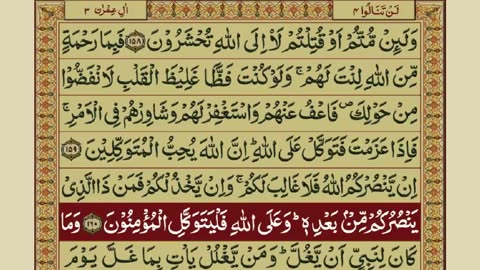 لَنْ تَنَالُوا ۴
اٰلِ عِمْرٰن ۳
وَلَئِنْ مُّتُّمْ اَوْ قُتِلْتُمْ لَاۡ اِلَى اللّٰهِ تُحْشَرُوْنَ ﴿۱۵۸﴾ فَبِمَا رَحْمَةٍ
مِّنَ اللّٰهِ لِنْتَ لَهُمْ ۚ وَلَوْ كُنْتَ فَظًّا غَلِيْظَ الْقَلْبِ لَانْفَضُّوْا
مِنْ حَوْلِكَ ۖ فَاعْفُ عَنْهُمْ وَاسْتَغْفِرْ لَهُمْ وَشَاوِرْهُمْ فِي الْاَمْرِ ۚ
فَاِذَا عَزَمْتَ فَتَوَكَّلْ عَلَى اللّٰهِ ؕ اِنَّ اللّٰهَ يُحِبُّ الْمُتَوَكِّلِيْنَ ﴿۱۵۹﴾
اِنْ يَّنْصُرْكُمُ اللّٰهُ فَلَا غَالِبَ لَكُمْ ۚ وَاِنْ يَّخْذُلْكُمْ فَمَنْ ذَا الَّذِيْ
يَنْصُرُكُمْ مِّنْۢ بَعْدِهٖ ؕ وَعَلَى اللّٰهِ فَلْيَتَوَكَّلِ الْمُؤْمِنُوْنَ ﴿۱۶۰﴾ وَمَا
كَانَ لِنَبِيٍّ اَنْ يَّغُلَّ ؕ وَمَنْ يَّغْلُلْ يَاْتِ بِمَا غَلَّ يَوْمَ